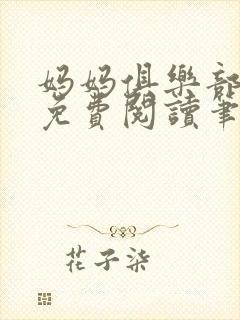 妈妈俱樂部
免費閱讀筆
花子柒